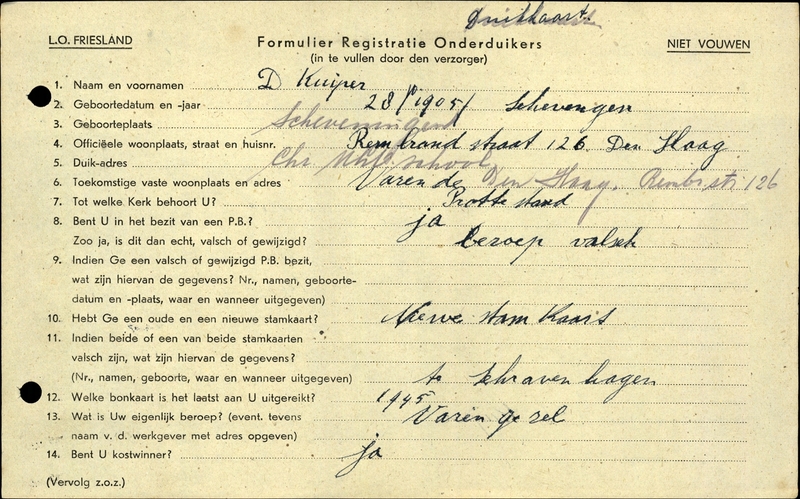 Duikkaart
L.O. FRIESLAND
Formulier Registratie Onderduikers
NIET VOUWEN
(in te vullen door den verzorger)
1. Naam en voornamen D Kuiper
2. Geboortedatum en -jaar 28 1905 Schevengen
3. Geboorteplaats Scheveningen
4. Officiëele woonplaats, straat en huisnr. Rembrand straat 126. Den Haag
5. Duik-adres Chr. school
6. Toekomstige vaste woonplaats en adres Varende Den Haag, Rembr.str 126
7. Tot welke Kerk behoort U? Protte stand
8. Bent U in het bezit van een P.B.? ja
Zoo ja, is dit dan echt, valsch of gewijzigd? beroep valsch
9. Indien Ge een valsch of gewijzigd P.B. bezit,
wat zijn hiervan de gegevens? Nr., namen, geboorte-
datum en -plaats, waar en wanneer uitgegeven)
10. Hebt Ge een oude en een nieuwe stamkaart? stam Kaart
11. Indien beide of een van beide stamkaarten
valsch zijn, wat zijn hiervan de gegevens?
(Nr., namen, geboorte, waar en wanneer uitgegeven) te Schraven hagen
12. Welke bonkaart is het laatst aan U uitgereikt? 1945
13. Wat is Uw eigenlijk beroep? (event. tevens Varen ge zel
naam v. d. werkgever met adres opgeven)
14. Bent U kostwinner? ja
(Vervolg z.o.z.)